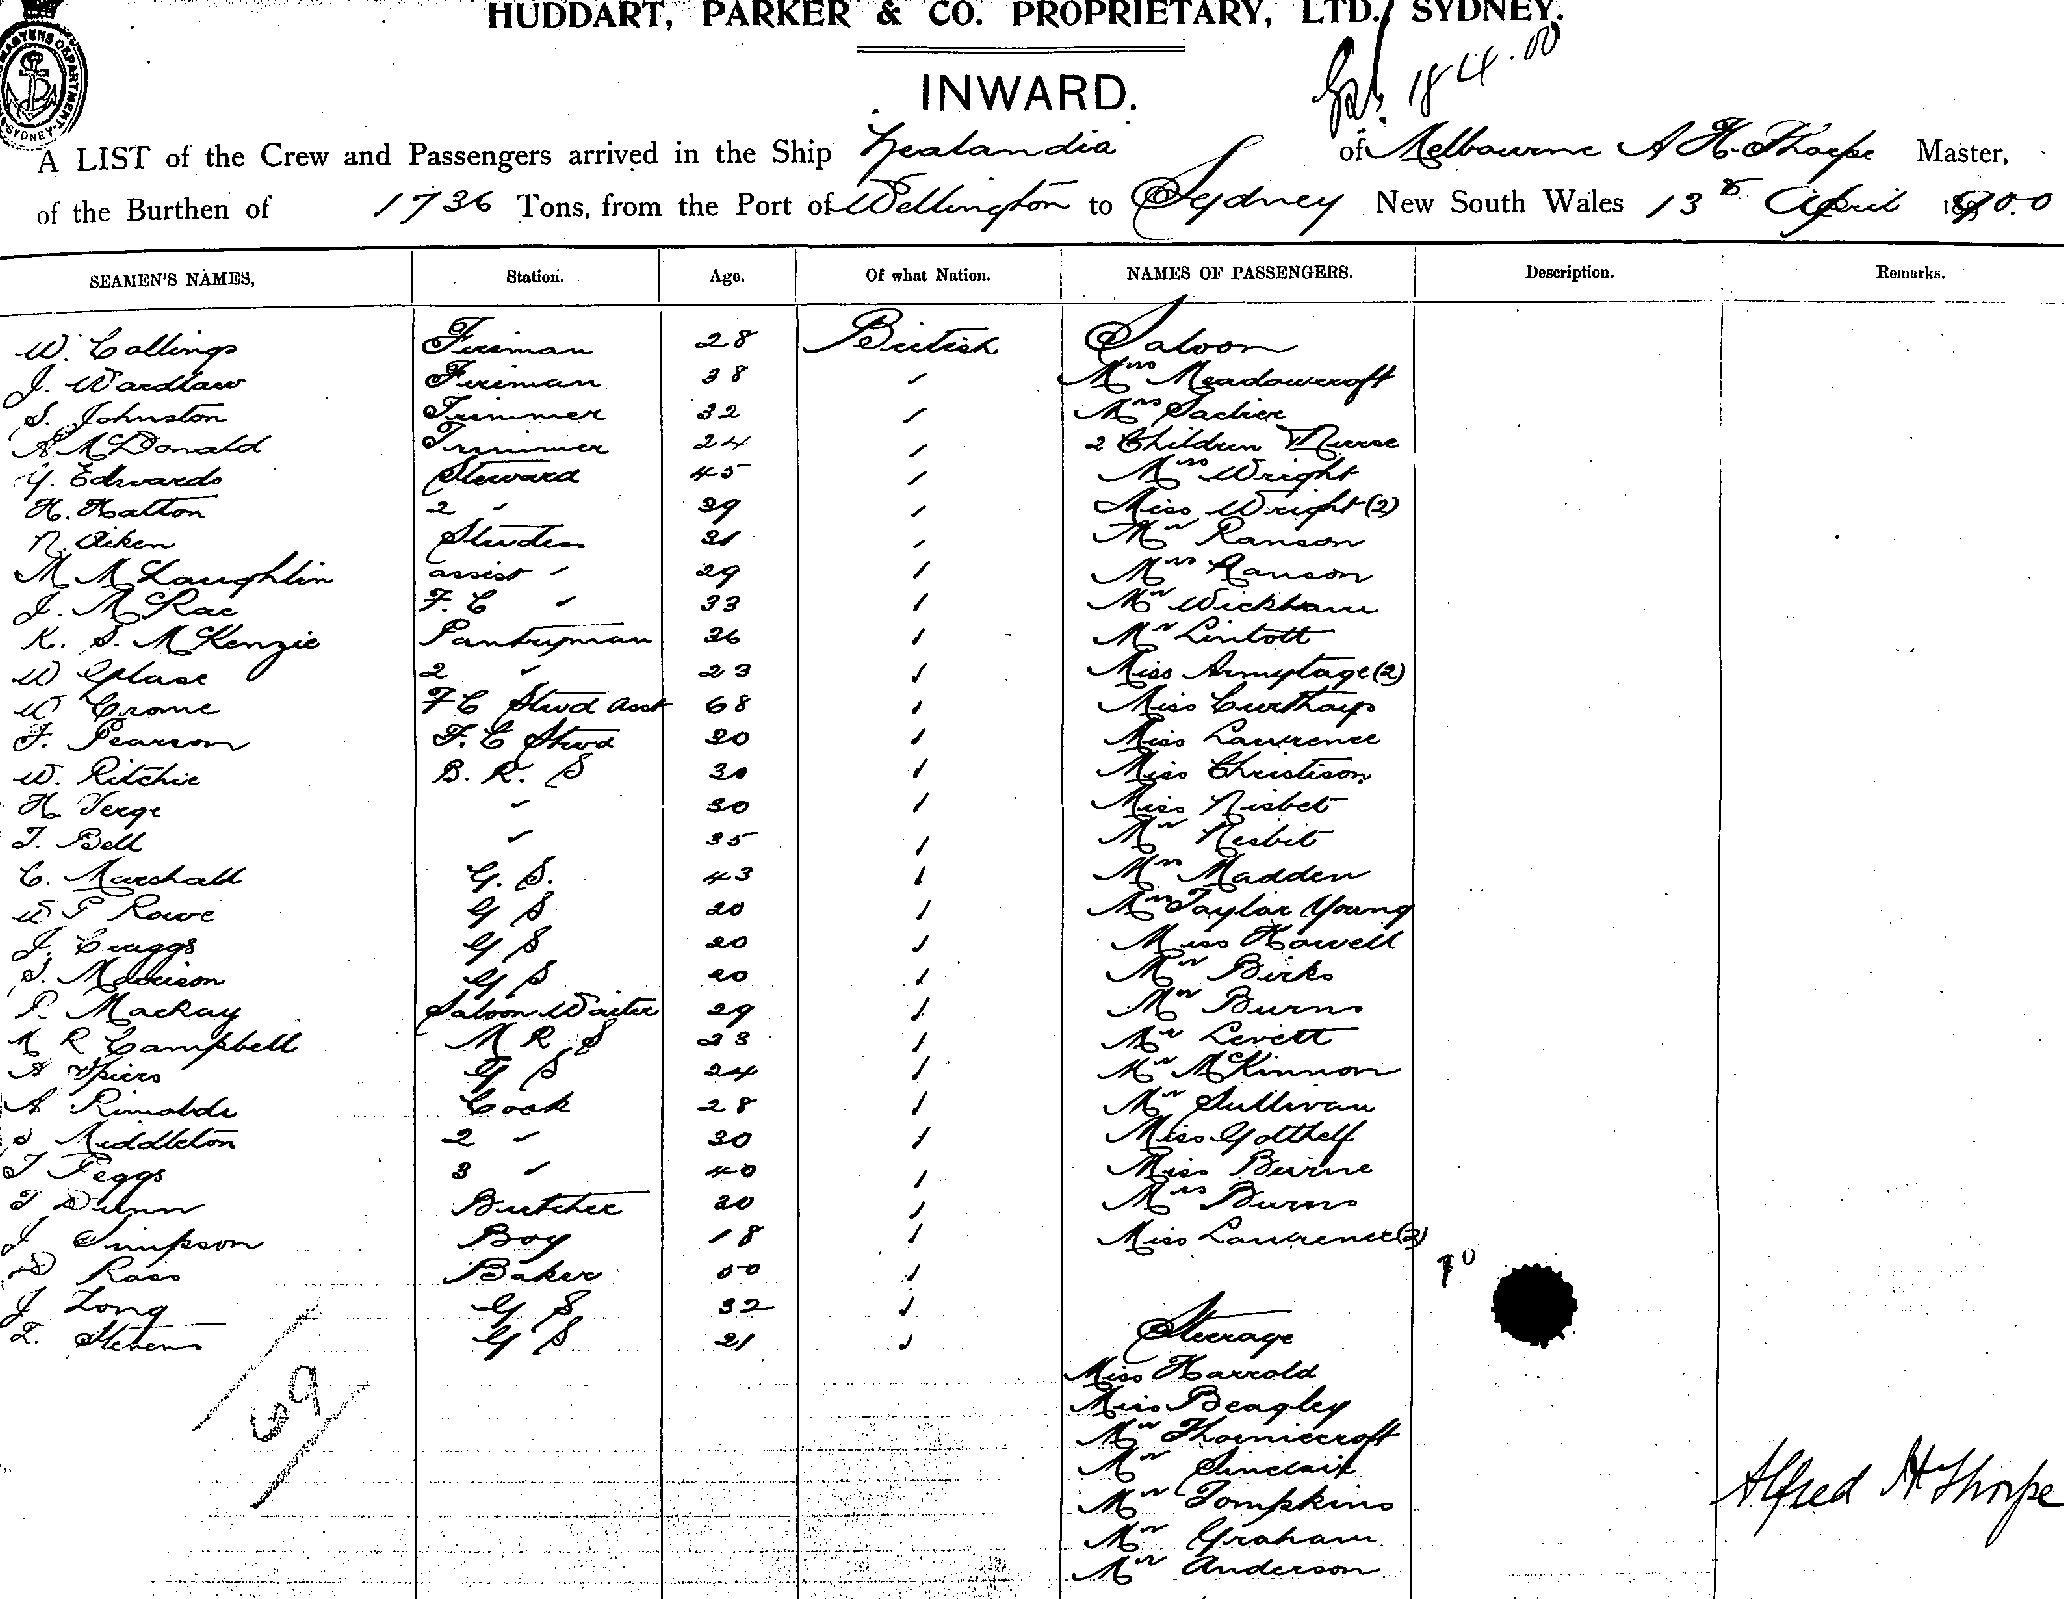 HUDDART, PARKER & CO. PROPRIETARY, LTD., SYDNEY.
INWARD.
18.4.00
A LIST of the Crew and Passengers arrived in the Ship Zealandia of Melbourne A H. Thorpe Master,
of the Burthen of 1736 Tons, from the Port of Wellington to Sydney New South Wales 13th April 1900
SEAMEN'S NAMES, Station. Age. Of what Nation. NAMES OF PASSENGERS. Description. Remarks.
W. Collings Fireman 28 British Saloon
J. Wardlaw Fireman 38 " Mrs Meadowcroft
S. Johnston Trimmer 32 " Mrs Sadier
A McDonald Trimmer 24 " 2 Children & Nurse
Y. Edwards Steward 45 " Mrs Wright
H. Hatton 2 " 29 " Miss Wright (2)
N. Aiken Studess 31 " Mr Ranson
M McLaughlin assist " 29 " Mrs Ranson
J. McRae F. C " 33 " Mr Wickham
K. S. McKenzie Pantryman 26 " Mr Lintott
W Glase 2 " 23 " Miss Armytage (2)
W Crome F C Stwd Asst 68 " Miss Curthays
F. Pearson F. C Stwd 20 " Miss Lawrence
W. Ritchie B. R. S 30 " Miss Christison
H. Verge " 30 " Miss Nisbet
T. Bell " 35 " Mr Nesbit
C. Marshall G. S. 43 " Mrs Madden
W P Rowe G S 20 " Mrs Taylor Young
J. Craggs G S 20 " Miss Howell
S. Morrison G S 20 " Mr Birks
P. Mackay Saloon Waiter 29 " Mr Burns
A R Campbell M R S 23 " Mr Levett
A Spiers G S 24 " Mr McKinnon
A Rinaldi Cook 28 " Mr Sullivan
S Middleton 2 " 30 " Miss Gotthelf
T Peggs 3 " 40 " Miss Burne
T Dunn Butcher 20 " Mrs Burns
J Simpson Boy 18 " Miss Lawrence (2)
D Ross Baker 50 "
J Long G S 32 "
E. Stevens G S 21 " Steerage
Miss Harrold
Miss Beagley
Mr Thornicroft
Mr Sinclair
Mr Tompkins
Mr Graham
Mr Anderson
69
Alfred H Thorpe